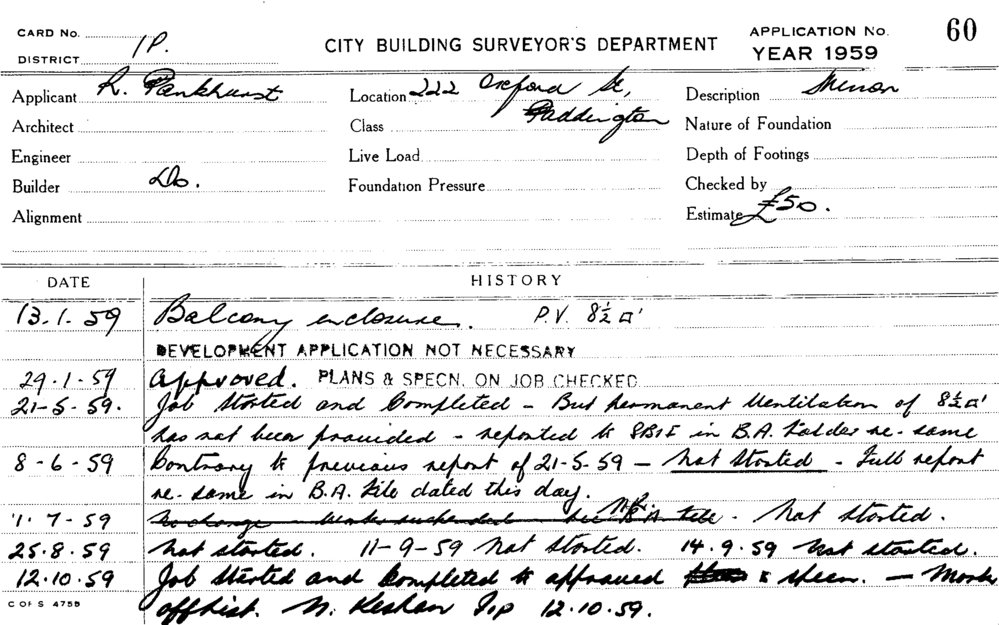 CARD No.
CITY BUILDING SURVEYOR'S DEPARTMENT
APPLICATION No. 60
DISTRICT 1P.
YEAR 1959
Applicant R. Pankhurst
Location 222 Oxford St,
Description Minor
Architect
Class Paddington
Nature of Foundation
Engineer
Live Load
Depth of Footings
Builder Do.
Foundation Pressure
Checked by
Alignment
Estimate £50.
DATE HISTORY
13.1.59 Balcony enclosure. P.V. 8½ □'
DEVELOPMENT APPLICATION NOT NECESSARY
29.1.59 Approved. PLANS & SPECN. ON JOB CHECKED
21-5-59. Job Started and Completed - But permanent Ventilation of 8½ □'
has not been provided - reported to in B.A. Folder re-same
8-6-59 Contrary to previous report of 21-5-59 - Not Started - Full report
re-same in B.A. File dated this day.
1.7-59 No change - see B.A. File. Not started.
25.8.59 Not started. 11-9-59 Not Started. 14.9.59 Not started.
12.10.59 Job Started and Completed to approved & specn. - Mark
off hist. N. 12.10.59.
C OF S 4759